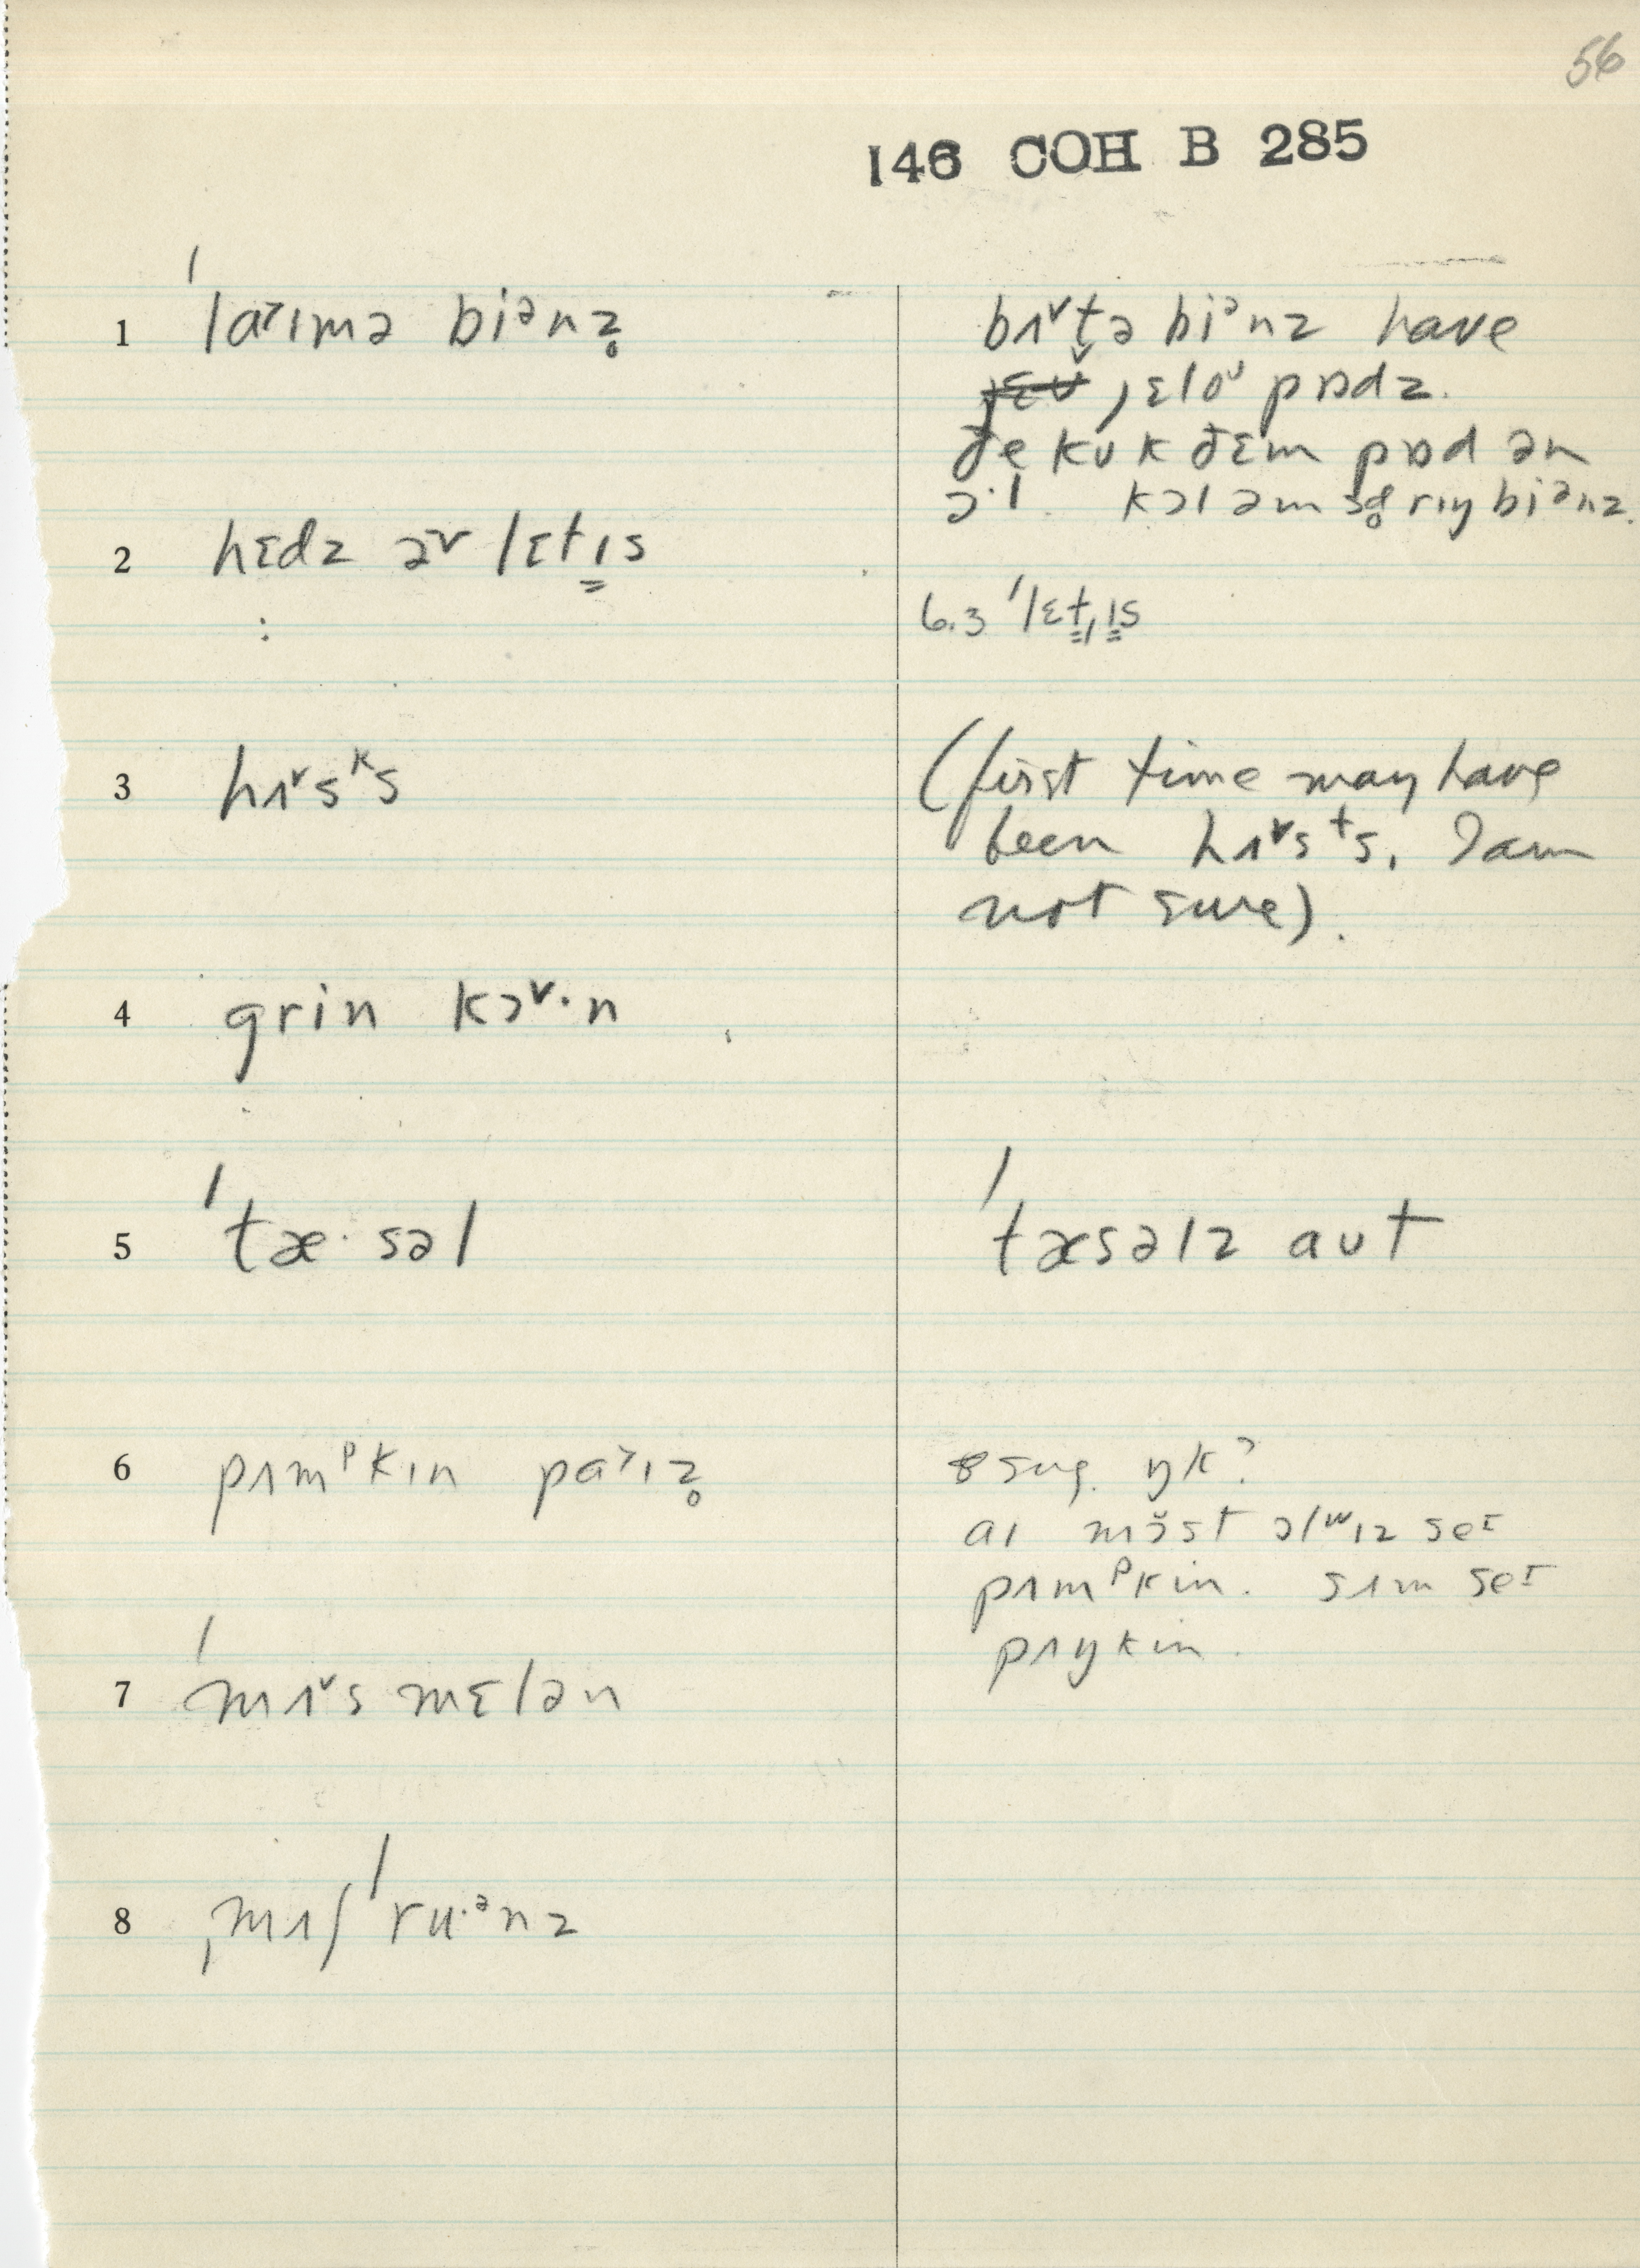 56
146 COH B 285
1 ˈlaˠɪmə biᵊnz̥
bʌ˅t̬ə biᵊnz have
jɛloᶷ pɒdz.
ðe̜ kʊk ðɛm pɒd ən
ɔ·l. kɔl əm sɝ̥rɪŋ biᵊnz.
2 hɛdz əv lɛtɪs
:
6.3 ˈlɛtɪs
3 hʌ˅sᵏs
(first time may have
been hʌ˅sᵗs. I am
not sure).
4 grin kɔ˅·n
5 ˈtæ·səl
ˈtæsəlz aʊt
6 pʌmᵖkɪn paˠɪz̥
sug. ŋk?
aɪ mōst ɔlʷɪz seᶦ
pʌmᵖkin. sʌm seᶦ
pʌŋkin.
7 ˈmʌ˅smɛlən
8 ˌmʌʃˈru·ᵊnz